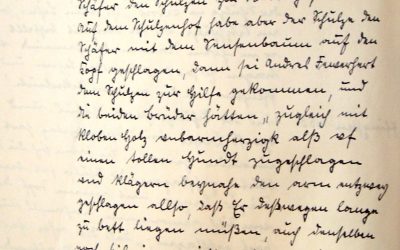 Schäfer den Schulzen zur
Auf dem Schulzenhof habe aber der Schulze den
Schäfer mit dem Sensenbaum auf den
Kopf geschlagen, dann sei Andres Feuerhert
dem Schulzen zur Hilfe gekommen, und
die beiden Brüder hätten „zugleich mit
kloben Holz unbarmherzigk alß uf
einen tollen Hundt zugeschlagen
und Klägern beynahe den arm entzwey
geschlagen allso, daß Er deßwegen lange
zu bett liegen müßen, auch denselben